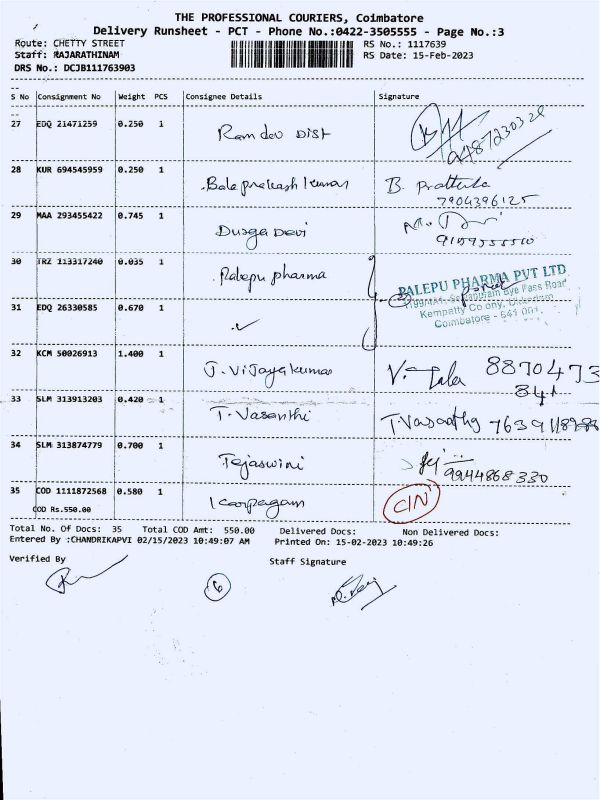 THE PROFESSIONAL COURIERS, Coimbatore
Delivery Runsheet - PCT - Phone No.:0422-3505555 - Page No.:3
Route: CHETTY STREET
RS No.: 1117639
Staff: RAJARATHINAM
RS Date: 15-Feb-2023
DRS No.: DCJB111763903
S No Consignment No Weight PCS Consignee Details Signature
27 EDQ 21471259 0.250 1 Ramdev Dist
28 KUR 694545959 0.250 1 Balaprakash kumar B. Prathiba
7904396125
29 MAA 293455422 0.745 1 Durga Devi
30 TRZ 113317240 0.035 1 Palepu pharma
PALEPU PHARMA PVT LTD
Bye Pass Road
Kempatty Colony,
Coimbatore - 641 001.
31 EDQ 26330585 0.670 1 ✓
32 KCM 50026913 1.400 1 J. Vijayakumar V. 8870473
841
33 SLM 313913203 0.420 1 T. Vasanthi T Vasantha
34 SLM 313874779 0.700 1 Tejaswini 9944868330
35 COD 1111872568 0.580 1 Karpagam CIN
COD Rs.550.00
Total No. Of Docs: 35 Total COD Amt: 550.00 Delivered Docs: Non Delivered Docs:
Entered By :CHANDRIKAPVI 02/15/2023 10:49:07 AM Printed On: 15-02-2023 10:49:26
Verified By Staff Signature
6